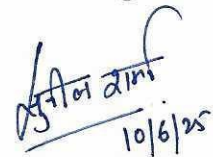 सुनील शर्मा
10/6/25